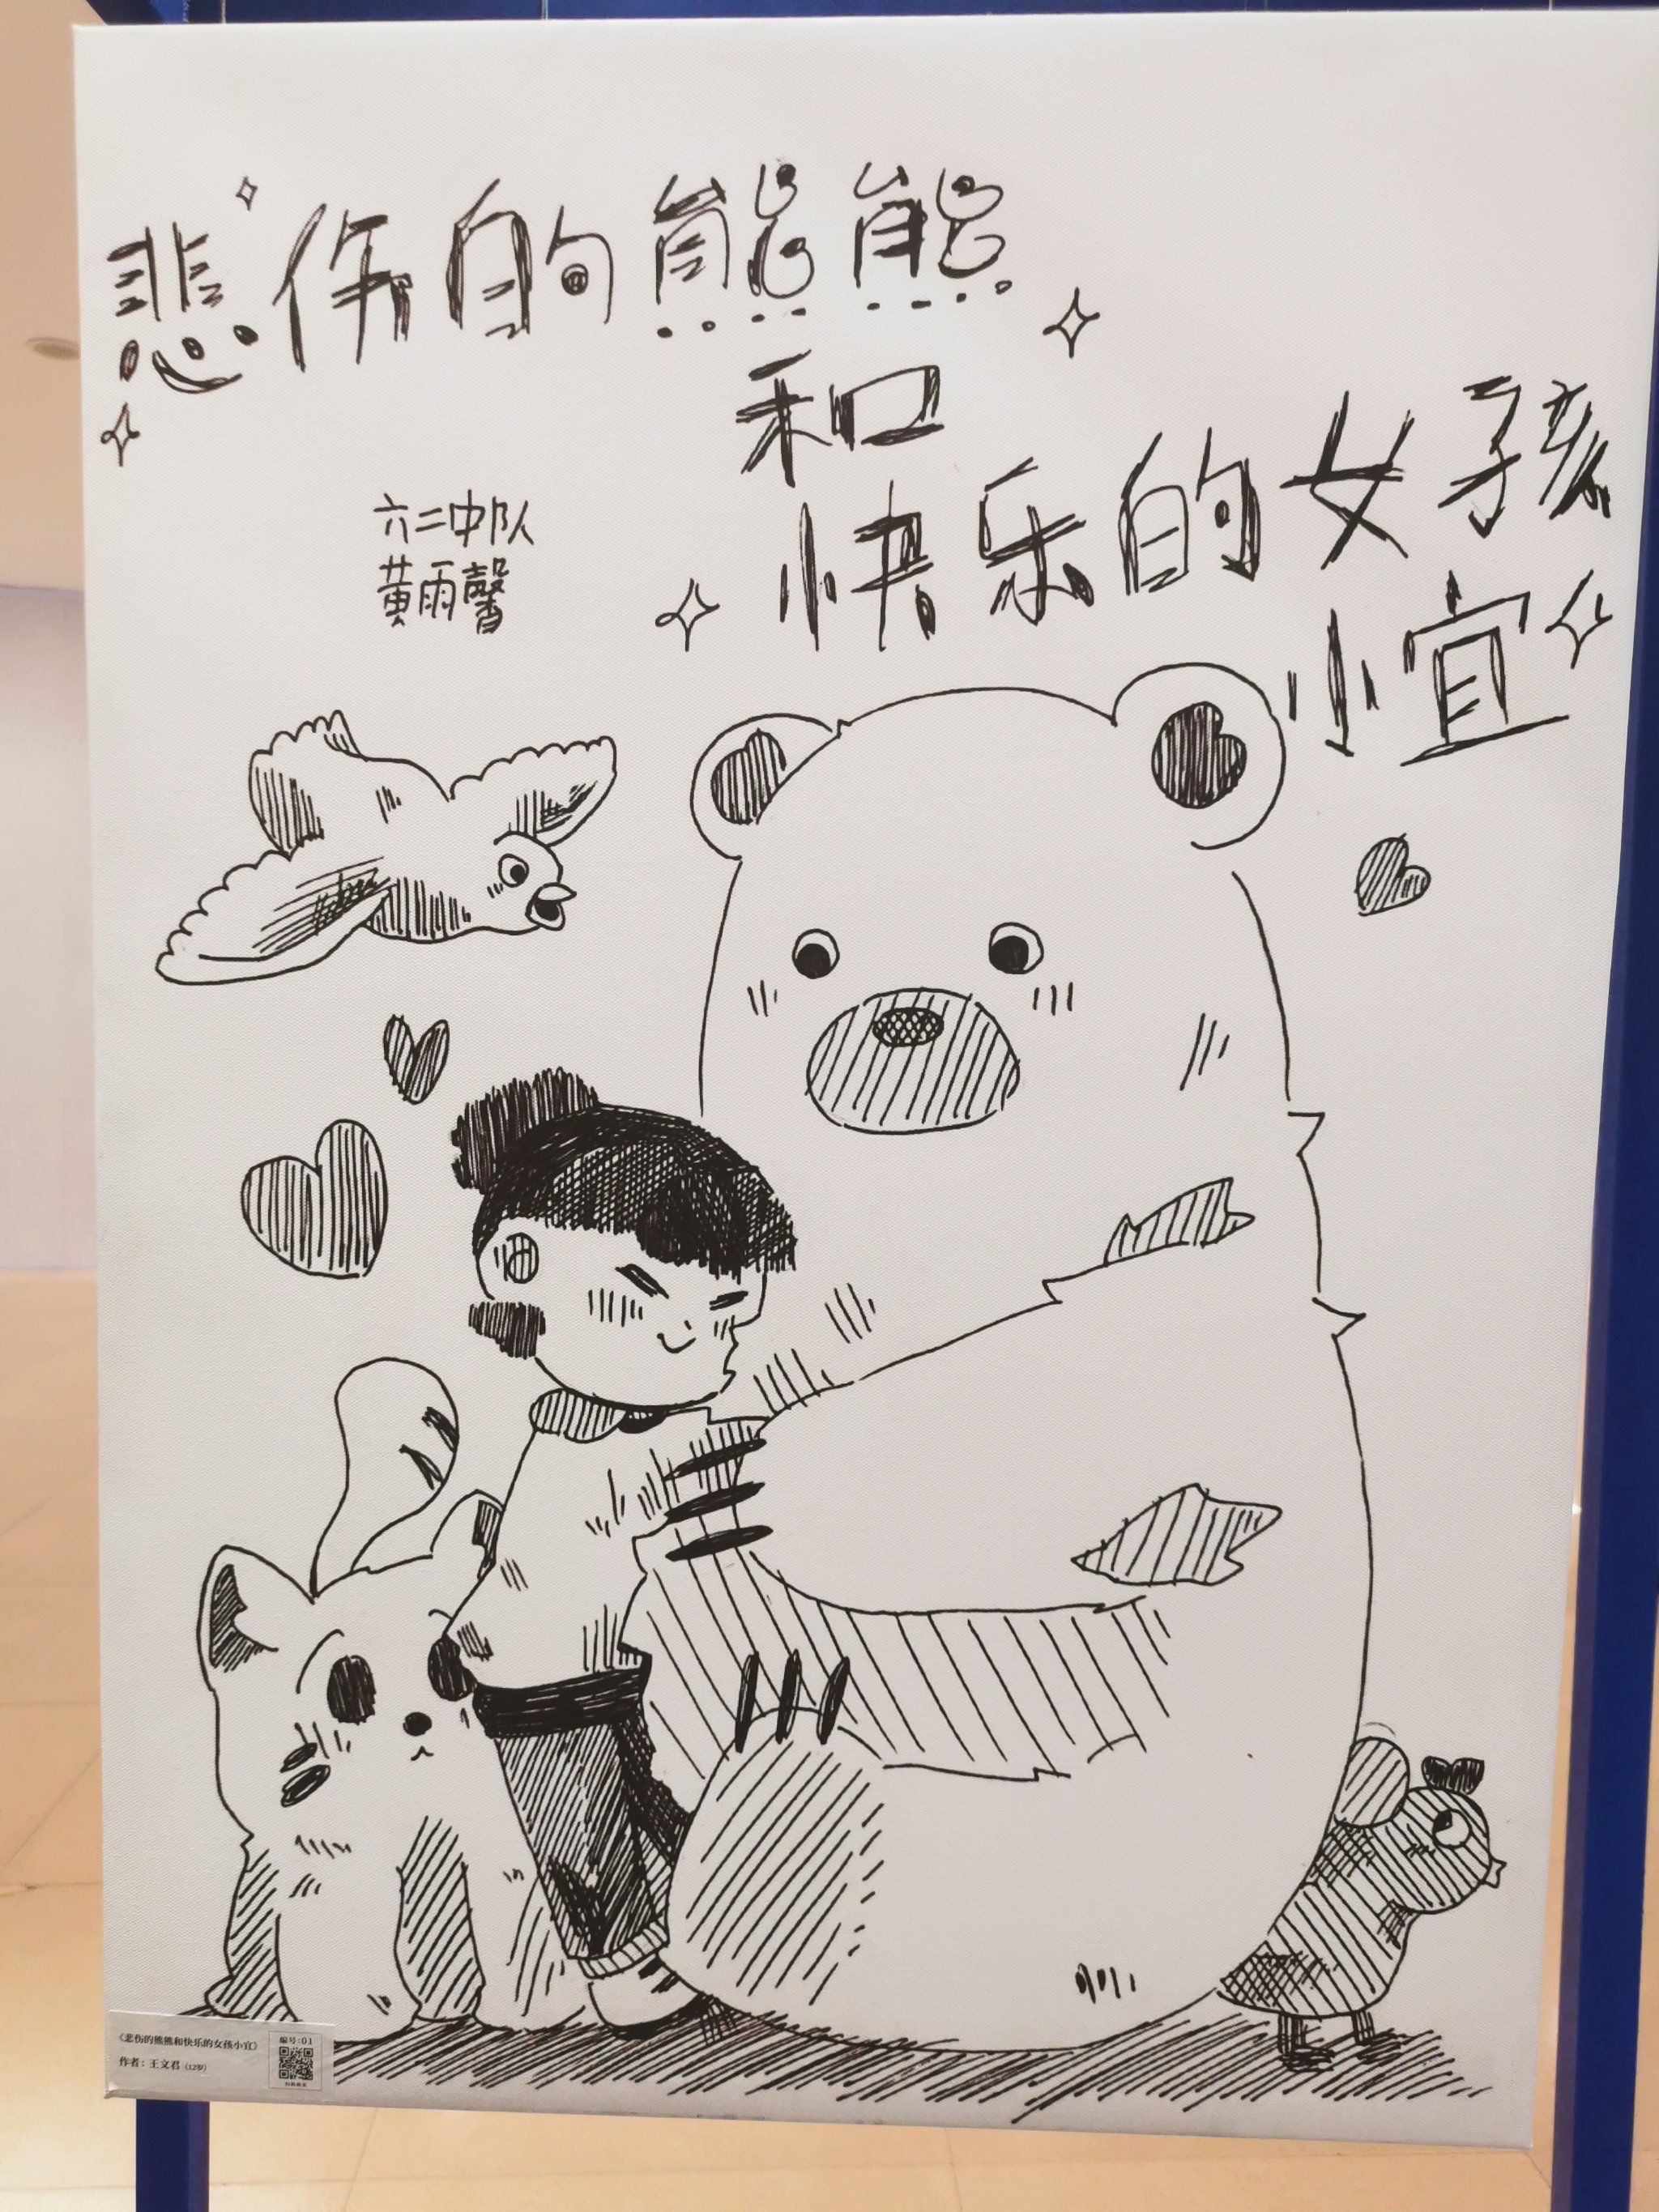 悲伤的熊熊
和
快乐的女孩
小宜
六二中队
黄雨馨
《悲伤的熊熊和快乐的女孩小宜》
作者：王文君（12岁）
编号:01